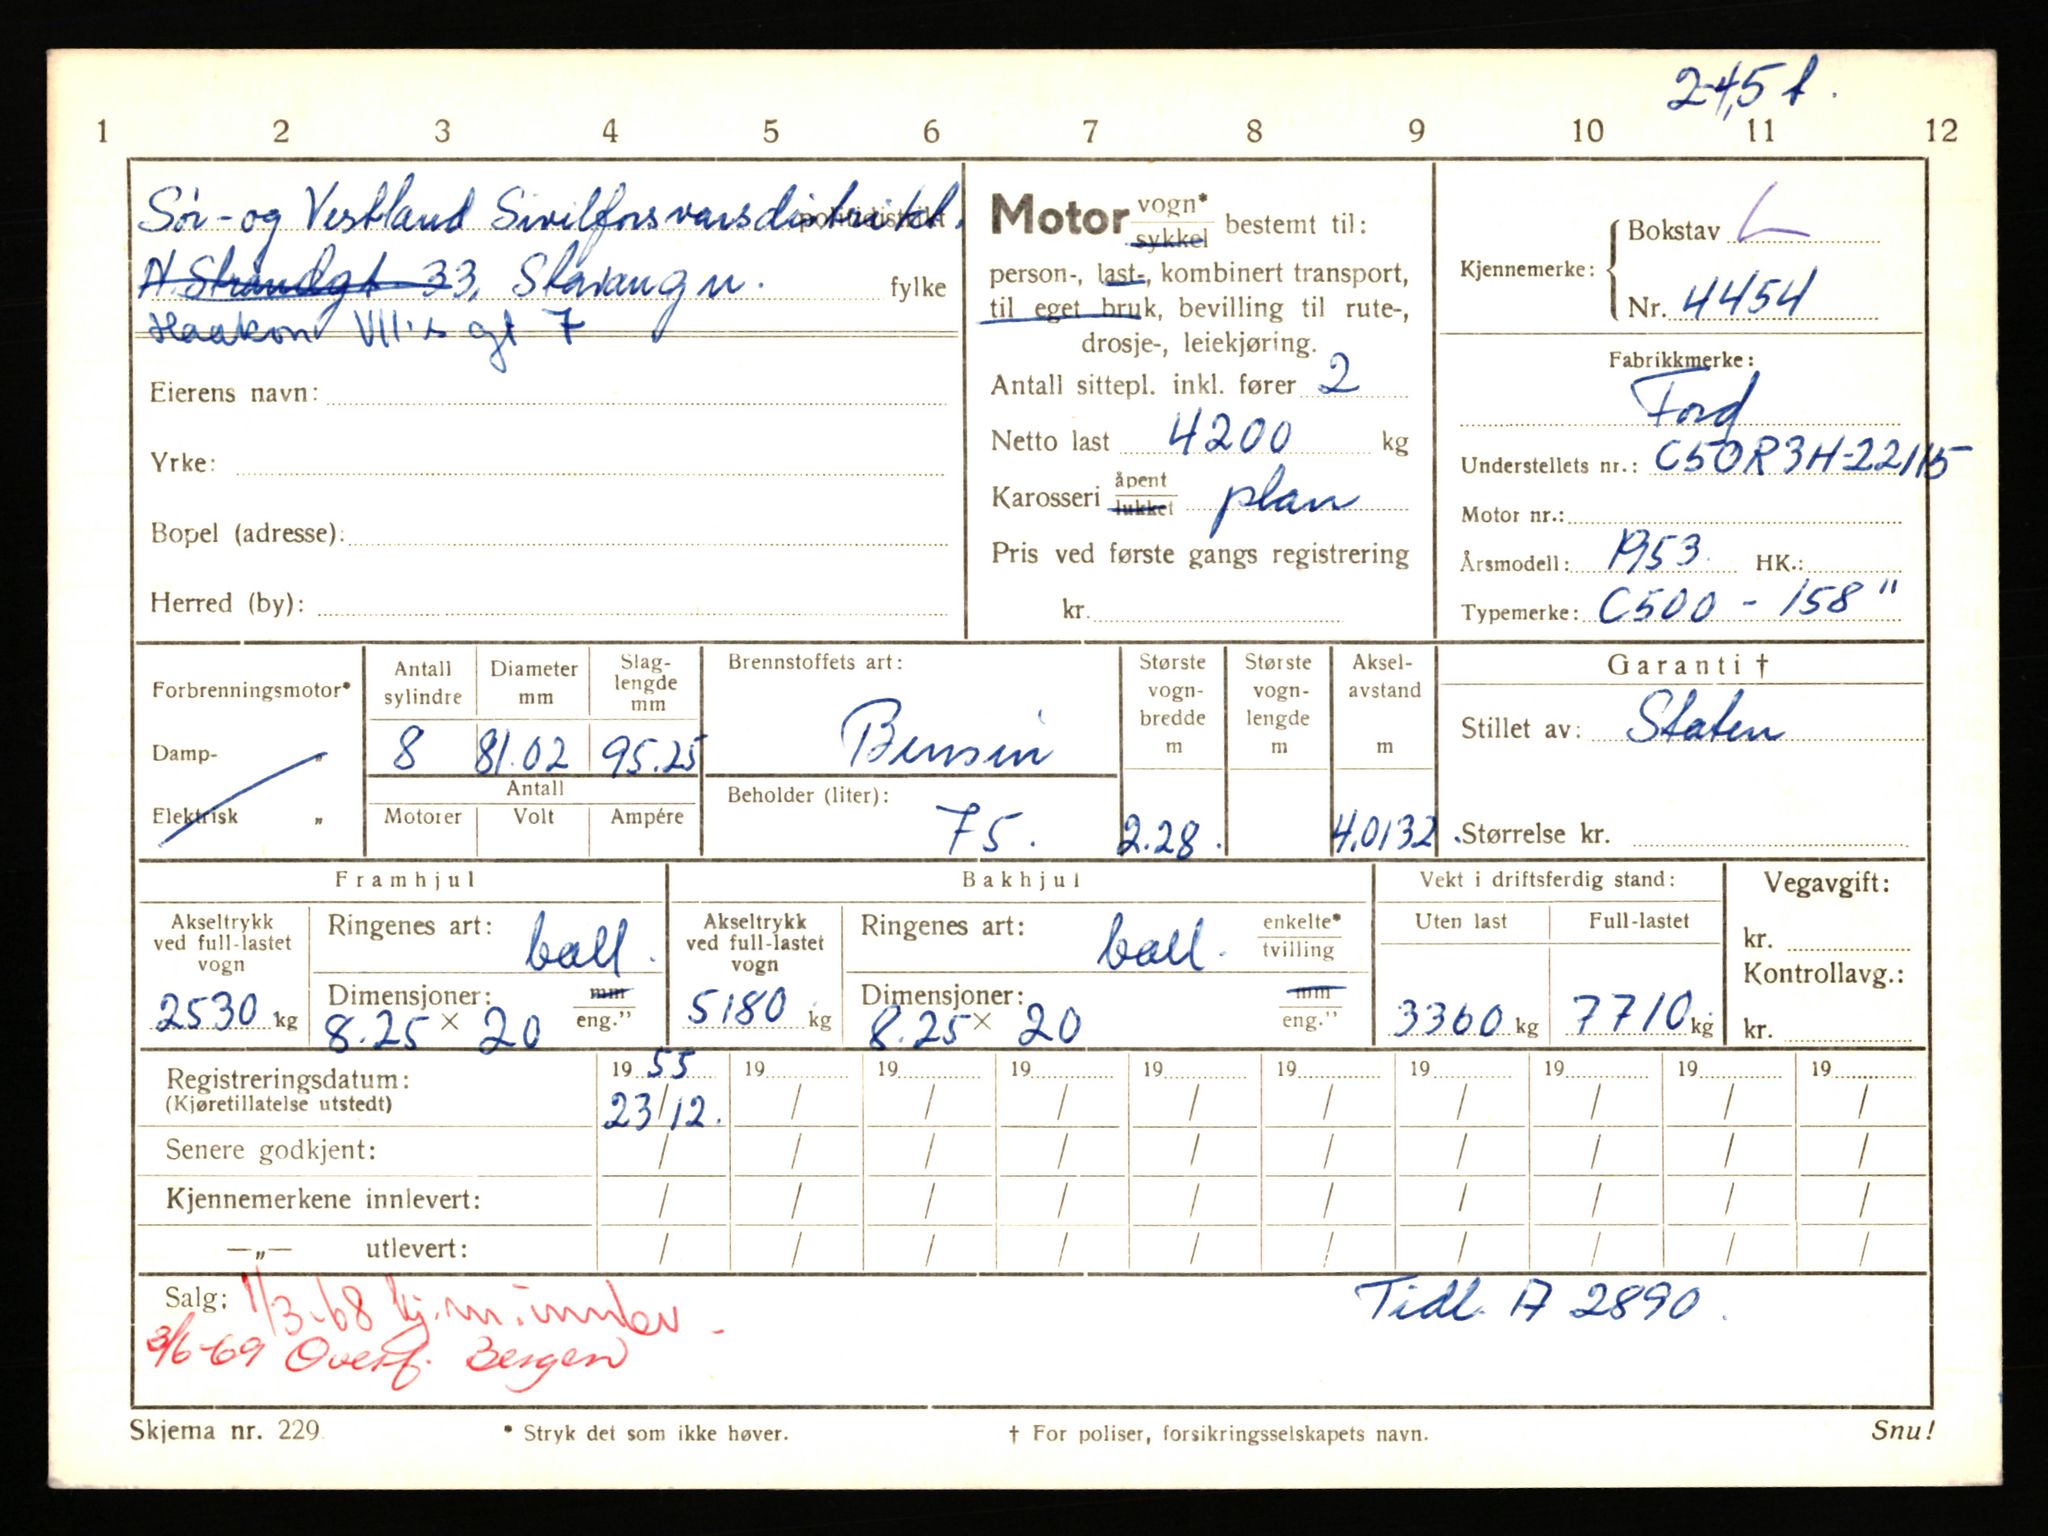 2-4,5 t.
1 2 3 4 5 6 7 8 9 10 11 12
Sør- og Vestland Sivilforsvarsdistrikt.
politidistrikt
N. Strandgt 33, Stavanger.
fylke
Haakon VII's gt 7
Eierens navn:
Yrke:
Bopel (adresse):
Herred (by):
Motor vogn* sykkel bestemt til:
person-, last-, kombinert transport,
til eget bruk, bevilling til rute-,
drosje-, leiekjøring.
Antall sittepl. inkl. fører 2
Netto last 4200 kg
Karosseri åpent lukket plan
Pris ved første gangs registrering
kr.
Kjennemerke: Bokstav L
Nr. 4454
Fabrikkmerke:
Ford
Understellets nr.: C50R3H-22115
Motor nr.:
Årsmodell: 1953. HK.:
Typemerke: C500 - 158"
Forbrenningsmotor*
Damp- „
Elektrisk „
Antall sylindre 8
Diameter mm 81.02
Slag-lengde mm 95.25
Antall
Motorer Volt Ampére
Brennstoffets art:
Bensin
Beholder (liter):
75.
Største vogn-bredde m 2.28.
Største vogn-lengde m
Aksel-avstand m 4.0132.
Garanti †
Stillet av: Staten
Størrelse kr.
Framhjul
Akseltrykk ved full-lastet vogn 2530 kg
Ringenes art: ball.
Dimensjoner: mm eng."
8.25 x 20
Bakhjul
Akseltrykk ved full-lastet vogn 5180 kg
Ringenes art: ball. enkelte* tvilling
Dimensjoner: mm eng."
8.25 x 20
Vekt i driftsferdig stand:
Uten last 3360 kg
Full-lastet 7710 kg
Vegavgift:
kr.
Kontrollavg.:
kr.
Registreringsdatum: 19 55 19 19 19 19 19 19 19 19 19
(Kjøretillatelse utstedt) 23/12. / / / / / / / / /
Senere godkjent: / / / / / / / / / /
Kjennemerkene innlevert: / / / / / / / / / /
—„— utlevert: / / / / / / / / / /
Salg: 1/3-68 kj.m. innlev.
3/6-69 Overf. Bergen
Tidl. A 2890.
Skjema nr. 229
* Stryk det som ikke høver.
† For poliser, forsikringsselskapets navn.
Snu!